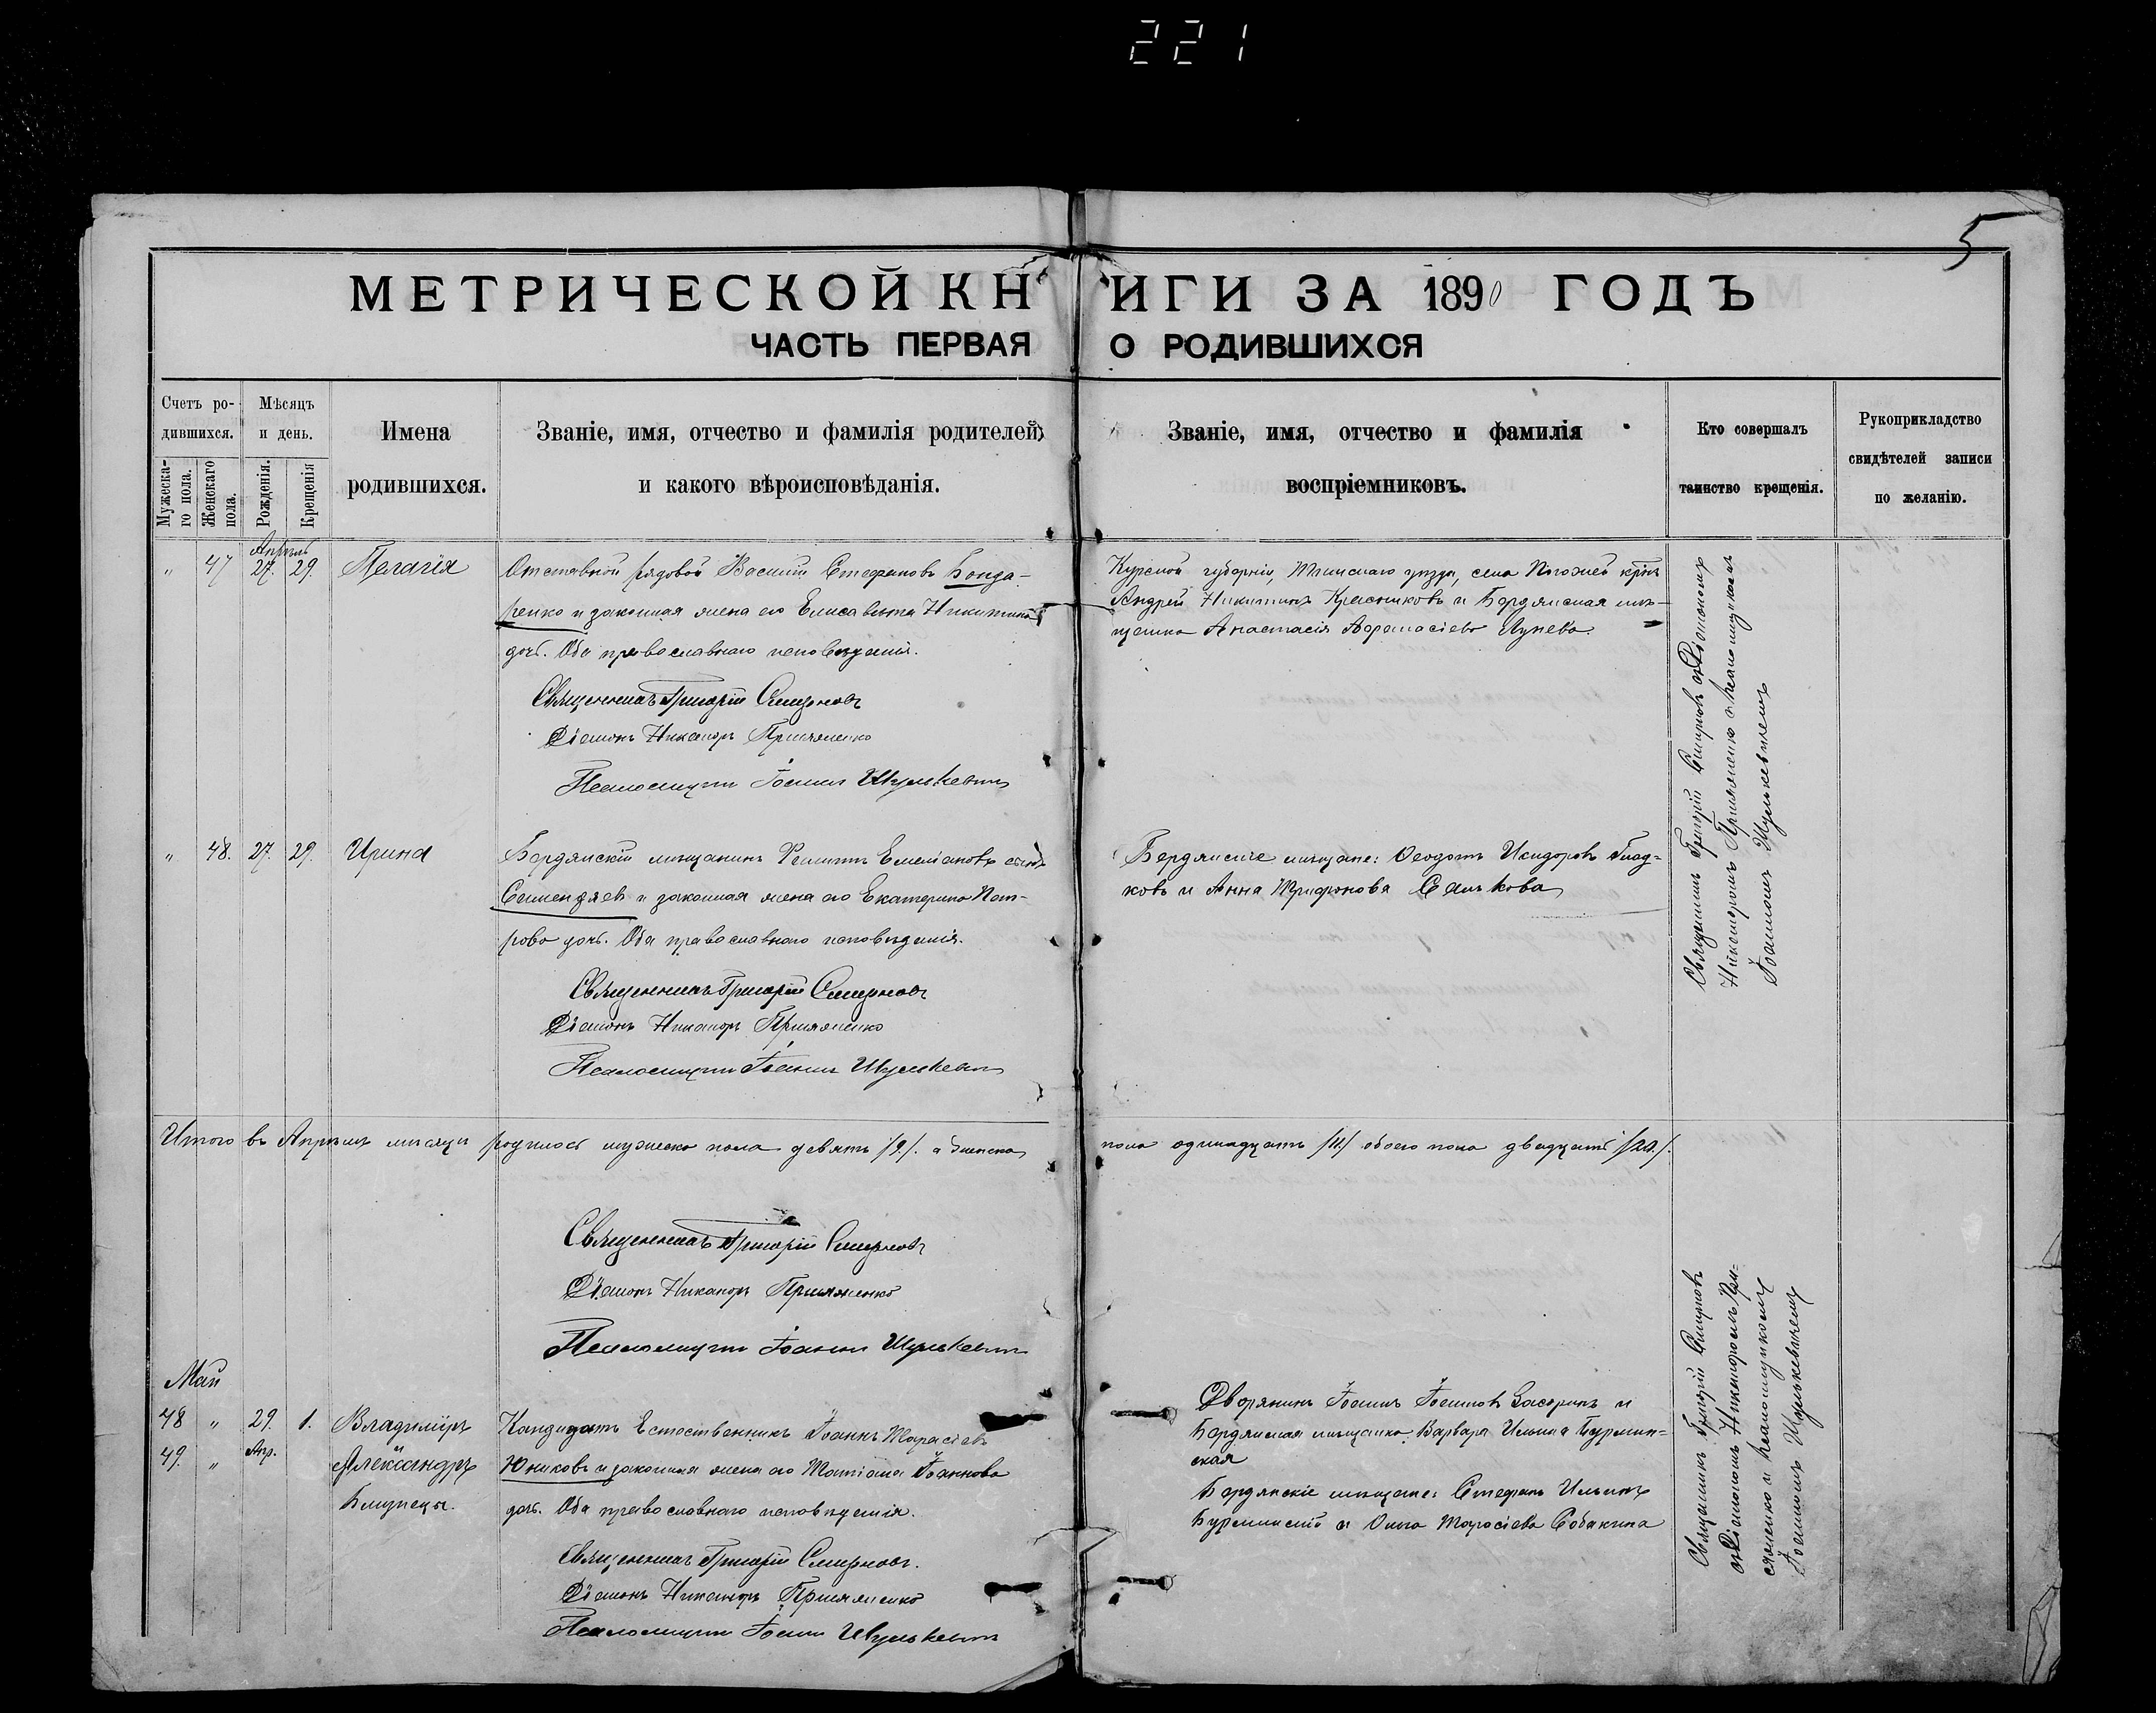 221
5
МЕТРИЧЕСКОЙ КНИГИ ЗА 1890 ГОДЪ
ЧАСТЬ ПЕРВАЯ О РОДИВШИХСЯ
Счетъ ро-
дившихся.
Мужеска-
го пола.
Женскаго
пола.
Мѣсяцъ
и день.
Рожденія.
Крещенія
Имена
родившихся.
Званіе, имя, отчество и фамилія родителей,
и какого вѣроисповѣданія.
Званіе, имя, отчество и фамилія
воспріемниковъ.
Кто совершалъ
таинство крещенія.
Рукоприкладство
свидѣтелей записи
по желанію.
Апрѣль
" 47 27. 29. Пелагія
Отставной рядовой Василій Стефановъ Бонда-
ренко и законная жена его Елисавета Никитина
дочь. Оба православнаго исповѣданія.
Священникъ Григорій Смирновъ
Діаконъ Никаноръ Прияженко
Псаломщикъ Іоаннъ Шулькевичъ
Курской губерніи, Тимскаго уѣзда, села крнъ
Андрей Никитинъ Красниковъ и Бердянская мѣ-
щанка Анастасія Афанасіева Лунева.
Священникъ Григорій Смирновъ съ Діакономъ
Никаноромъ Прияженко и псаломщикомъ
Іоанномъ Шулькевичемъ
" 48. 27. 29. Ирина
Бердянскій мѣщанинъ Филиппъ Емеліановъ сынъ
Семендяевъ и законная жена его Екатерина Пет-
рова дочь. Оба православнаго исповѣданія.
Священникъ Григорій Смирновъ
Діаконъ Никаноръ Прияженко
Псаломщикъ Іоаннъ Шулькевичъ
Бердянскіе мѣщане: Ѳеодотъ Исидоровъ Глад-
ковъ и Анна Трифонова Салькова
Итого въ Апрѣлѣ мѣсяцѣ родилось мужеска пола девять /9/. а женска
пола одинадцать /11/ обоего пола двадцать /20/.
Священникъ Григорій Смирновъ
Діаконъ Никаноръ Прияженко
Псаломщикъ Іоаннъ Шулькевичъ
Май
48 " 29 1. Владиміръ
49. " Апр. Александръ
Близнецы.
Кандидатъ Естественникъ Іоаннъ Тарасіевъ
Юниковъ и законная жена его Татіана Іоаннова
дочь. Оба православнаго исповѣданія.
Священникъ Григорій Смирновъ.
Діаконъ Никаноръ Прияженко
Псаломщикъ Іоаннъ Шулькевичъ
Дворянинъ Іоаннъ Іоанновъ и
Бердянская мѣщанка Варвара Ильина Бурмин-
ская
Бердянскіе мѣщане: Стефанъ Ильинъ
Бурминскій и Ольга Тарасіева Собакина
Священникъ Григорій Смирновъ
съ Діакономъ Никаноромъ При-
яженко и псаломщикомъ
Іоанномъ Шулькевичемъ